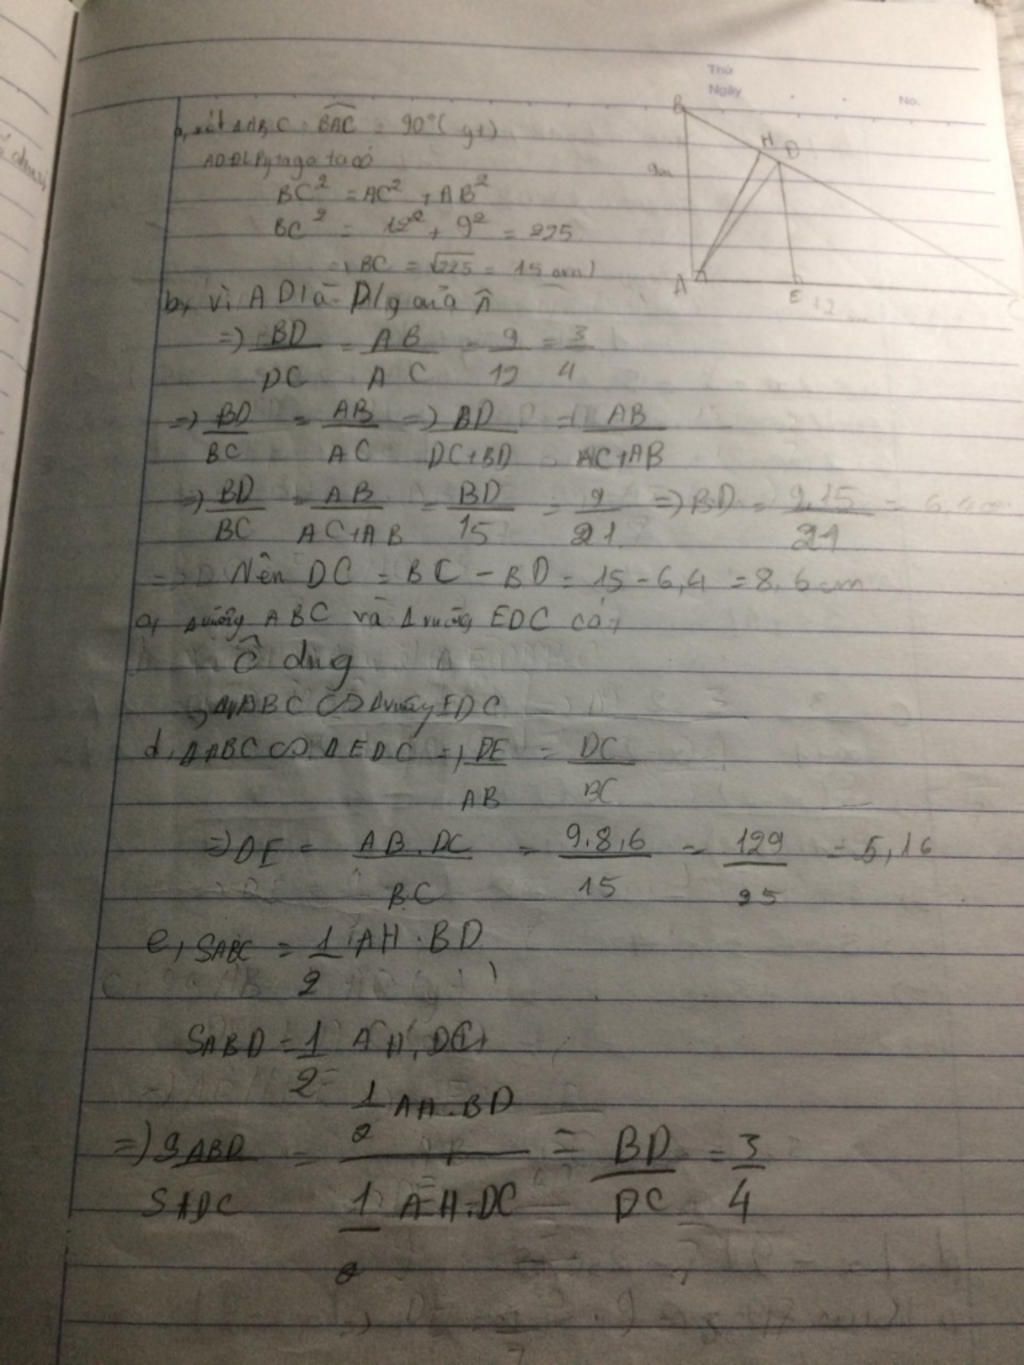 Thứ
Ngày
No.
B
H D
9cm
A E 12 C
a, xét ΔABC: BAC = 90° (gt)
ADĐL Pytago ta có
BC² = AC² + AB²
BC² = 12² + 9² = 225
⇒ BC = √225 = 15 (cm)
b, vì AD là P/g của Â
⇒ BD/DC = AB/AC = 9/12 = 3/4
⇒ BD/BC = AB/AC ⇒ BD/DC+BD = AB/AC+AB
⇒ BD/BC = AB/AC+AB = BD/15 = 9/21 ⇒ BD = 9.15/21 = 6,4cm
Nên DC = BC - BD = 15 - 6,4 = 8,6 cm
Δvuông ABC và Δvuông EDC có:
Ĉ chug
ΔABC ∽ Δvuông EDC
d, ΔABC ∽ ΔEDC ⇒ DE/AB = DC/BC
⇒ DE = AB.DC/BC = 9.8,6/15 = 129/25 = 5,16
e, SABC = 1/2 AH.BD
SABD = 1/2 AH.DC
⇒ SABD/SADC = 1/2 AH.BD / 1/2 AH.DC = BD/DC = 3/4